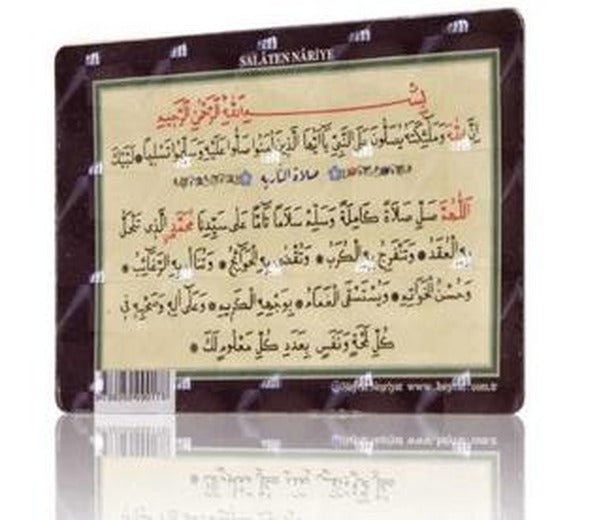 SALÂTEN NÂRİYE
بِسْمِ اللهِ الرَّحْمٰنِ الرَّحِيمِ
اِنَّ اللهَ وَمَلٰئِكَتَهُ يُصَلُّونَ عَلَى النَّبِيِّ يَا اَيُّهَا الَّذِينَ اٰمَنُوا صَلُّوا عَلَيْهِ وَسَلِّمُوا تَسْلِيمًا لَبَّيْكَ
صلاة النارية
اَللّٰهُمَّ صَلِّ صَلَاةً كَامِلَةً وَسَلِّمْ سَلَامًا تَامًّا عَلٰى سَيِّدِنَا مُحَمَّدٍ الَّذِي تَنْحَلُّ
بِهِ الْعُقَدُ وَتَنْفَرِجُ بِهِ الْكُرَبُ وَتُقْضٰى بِهِ الْحَوَائِجُ وَتُنَالُ بِهِ الرَّغَائِبُ
وَحُسْنُ الْخَوَاتِمِ وَيُسْتَسْقَى الْغَمَامُ بِوَجْهِهِ الْكَرِيمِ وَعَلٰى اٰلِهِ وَصَحْبِهِ فِي
كُلِّ لَمْحَةٍ وَنَفَسٍ بِعَدَدِ كُلِّ مَعْلُومٍ لَكَ